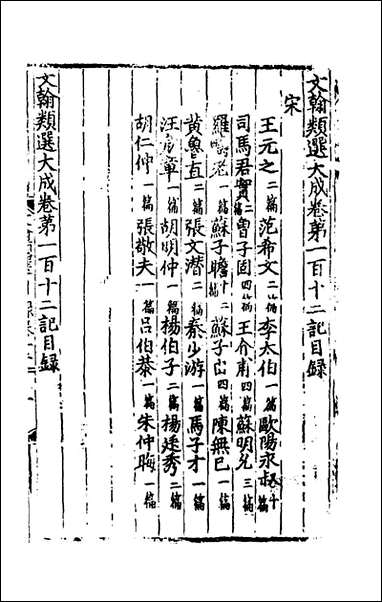 文翰類選大成卷第一百十二記目録
宋
王元之二篇 范希文二篇 李太伯一篇 歐陽永叔十
司馬君實二篇 曾子固四篇 王介甫四篇 蘇明允三篇
羅 老一篇 蘇子瞻十二篇 蘇子由四篇 陳無已一篇
黄魯直二篇 張文潜二篇 秦少游一篇 馬子才一篇
汪彦章一篇 胡明仲一篇 楊伯子二篇 楊廷秀二篇
胡仁仲一篇 張敬夫一篇 吕伯恭一篇 朱仲晦一篇
文翰類選大成卷第一百十二記目録